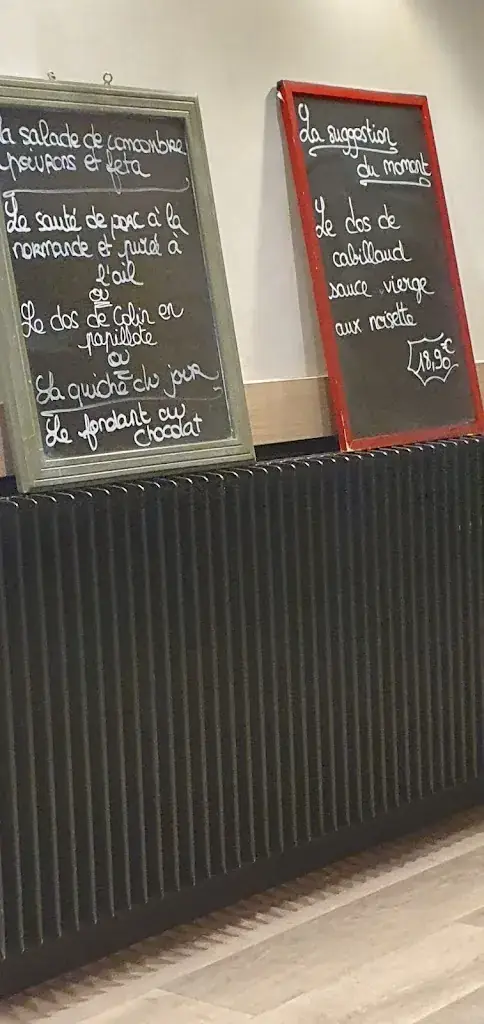 la salade de concombre
poivrons et feta
Le sauté de porc à la
normande et purée à
l'ail
ou
Le dos de Colin en
papillote
ou
La quiche du jour
Le fondant au
chocolat
La suggestion
du moment
Le dos de
cabillaud
sauce vierge
aux noisette
18,90€